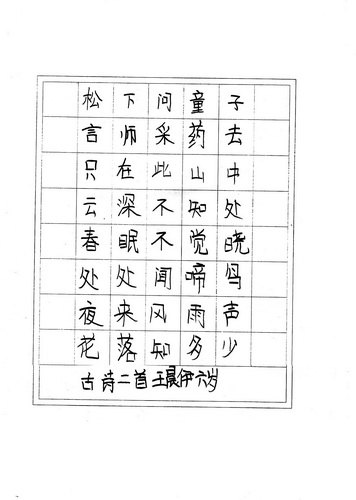 松下问童子
言师采药去
只在此山中
云深不知处
春眠不觉晓
处处闻啼鸟
夜来风雨声
花落知多少
古诗二首王晨伊六岁